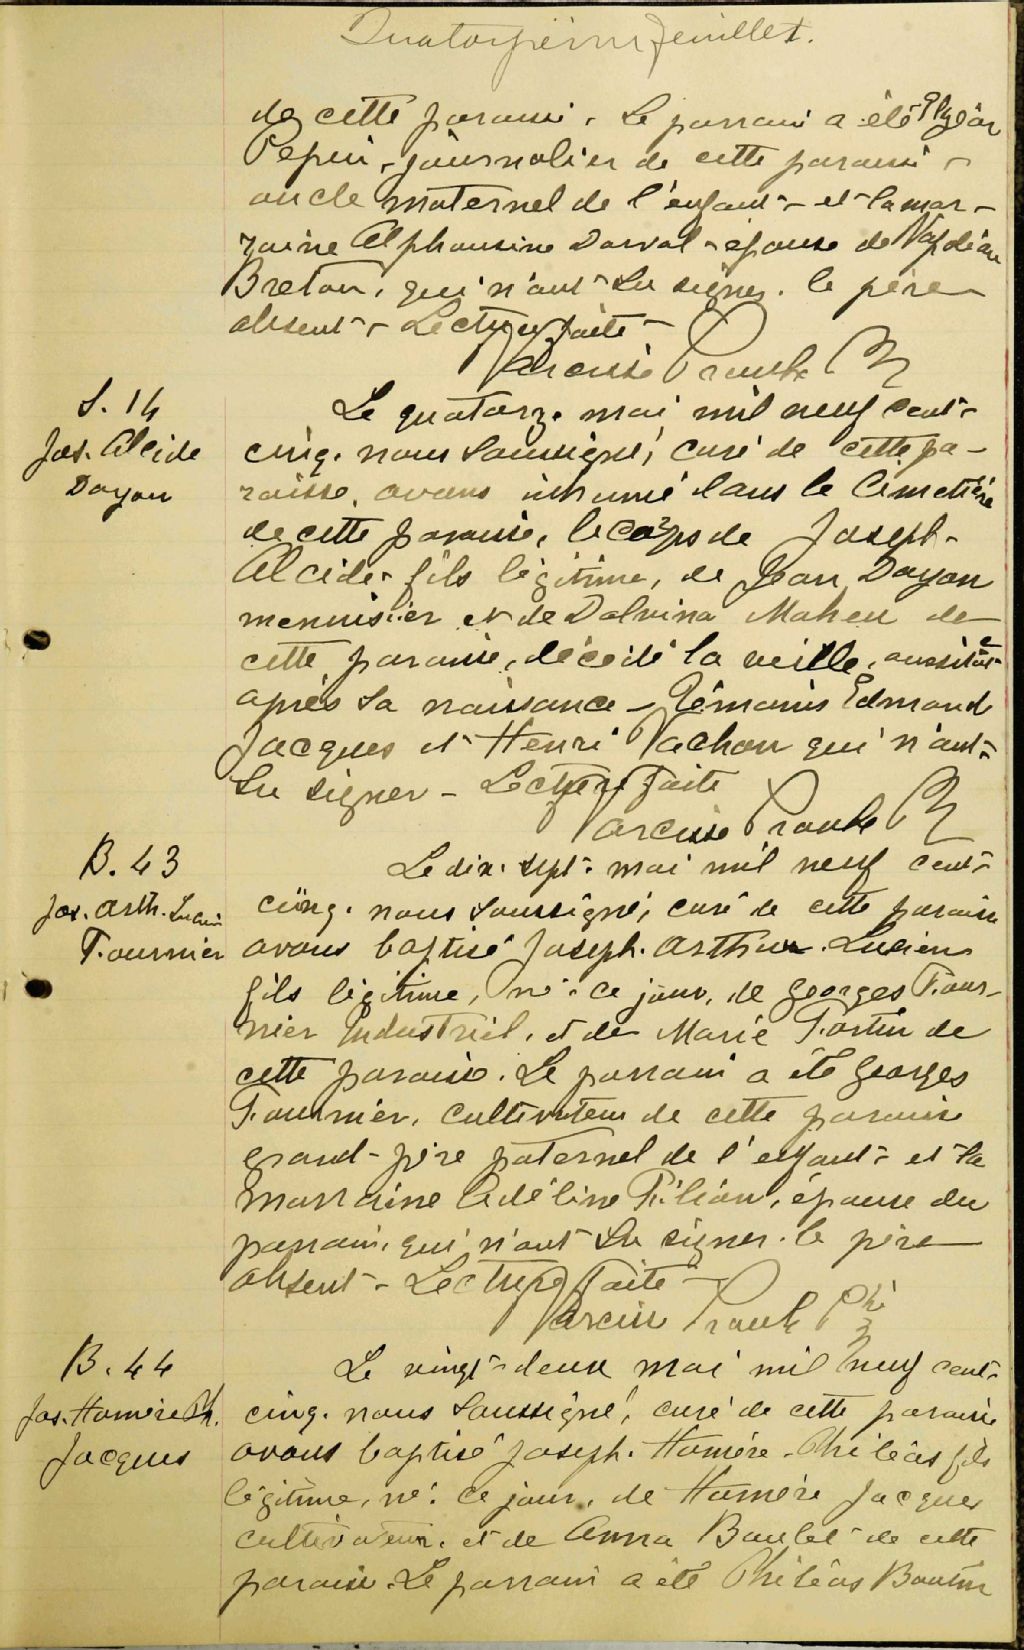 Quatorzième feuillet.
de cette paroisse. Le parrain a été Elzéar
Pepin, journalier de cette paroisse,
oncle maternel de l'enfant - et la mar-
raine Alphonsine Dorval - épouse de Napoléon
Breton, qui n'ont su signer. le père
absent - Lecture faite -
Narcisse Proulx Ptre
S. 14
Jos. Alcide
Doyon
Le quatorze mai mil neuf cent-
cinq. nous soussigné, curé de cette pa-
roisse, avons inhumé dans le Cimetière
de cette paroisse, le corps de Joseph-
Alcide fils légitime, de Jean Doyon
menuisier et de Dalvina Maheu de
cette paroisse, décédé la veille, aussitôt
après sa naissance - Témoins Edmond
Jacques et Henri Vachon qui n'ont
su signer - Lecture faite
Narcisse Proulx Ptre
B. 43
Jos. Arth. Lucien
Fournier
Le dix-sept mai mil neuf cent-
cinq. nous soussigné, curé de cette paroisse
avons baptisé Joseph. Arthur. Lucien
fils légitime, né ce jour, de Georges Four-
nier Industriel, et de Marie Fortin de
cette paroisse. Le parrain a été Georges
Fournier, cultivateur de cette paroisse
grand-père paternel de l'enfant et la
marraine Adéline Filion, épouse du
parrain, qui n'ont su signer. le père
absent - Lecture faite -
Narcisse Proulx Ptre
B. 44
Jos. Homère Ph.
Jacques
Le vingt-deux mai mil neuf cent-
cinq. nous soussigné, curé de cette paroisse
avons baptisé Joseph. Homère - Philéas fils
légitime, né ce jour, de Homère Jacques
cultivateur. et de Anna Boulet de cette
paroisse. Le parrain a été Philéas Boutin